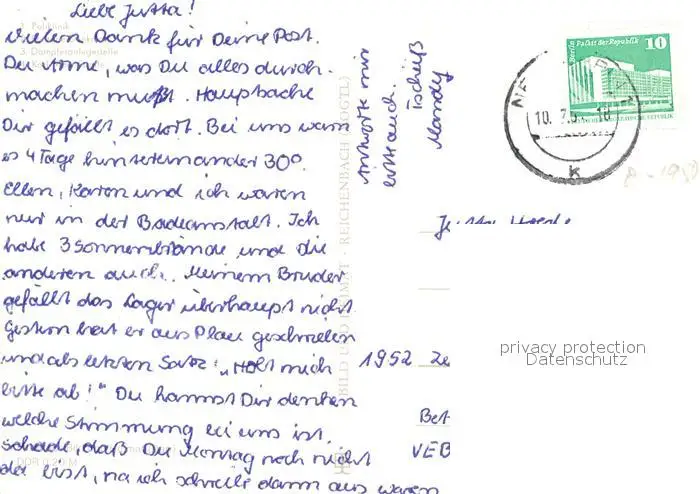 Liebe Jutta!
Vielen Dank für Deine Post.
Du Arme, was Du alles durch-
machen mußt. Hauptsache
Dir gefällt es dort. Bei uns warn
es 4 Tage hintereinander 30°.
Ellen, Karen und ich waren
nur in der Badeanstalt. Ich
habe 3 Sonnenbrände und die
anderen auch. Meinem Bruder
gefällt das Lager überhaupt nicht
Gestern hat er aus Plau geschrieben
und als letzten Satz: "Holt mich
bitte ab!" Du kannst Dir denken
welche Stimmung bei uns ist.
Schade, daß Du Montag noch nicht
da bist, na ich schreibe dann aus
Antworte mir
bitte auch.
Tschüß
Mandy
BILD UND HEIMAT · REICHENBACH (VOGTL)
1. Poliklinik
3. Dampferanlegestelle
Berlin, Palast der Republik
10
DEUTSCHE DEMOKRATISCHE REPUBLIK
10. 7.
k
Jutta
1952
Bet
VEB
privacy protection
Datenschutz